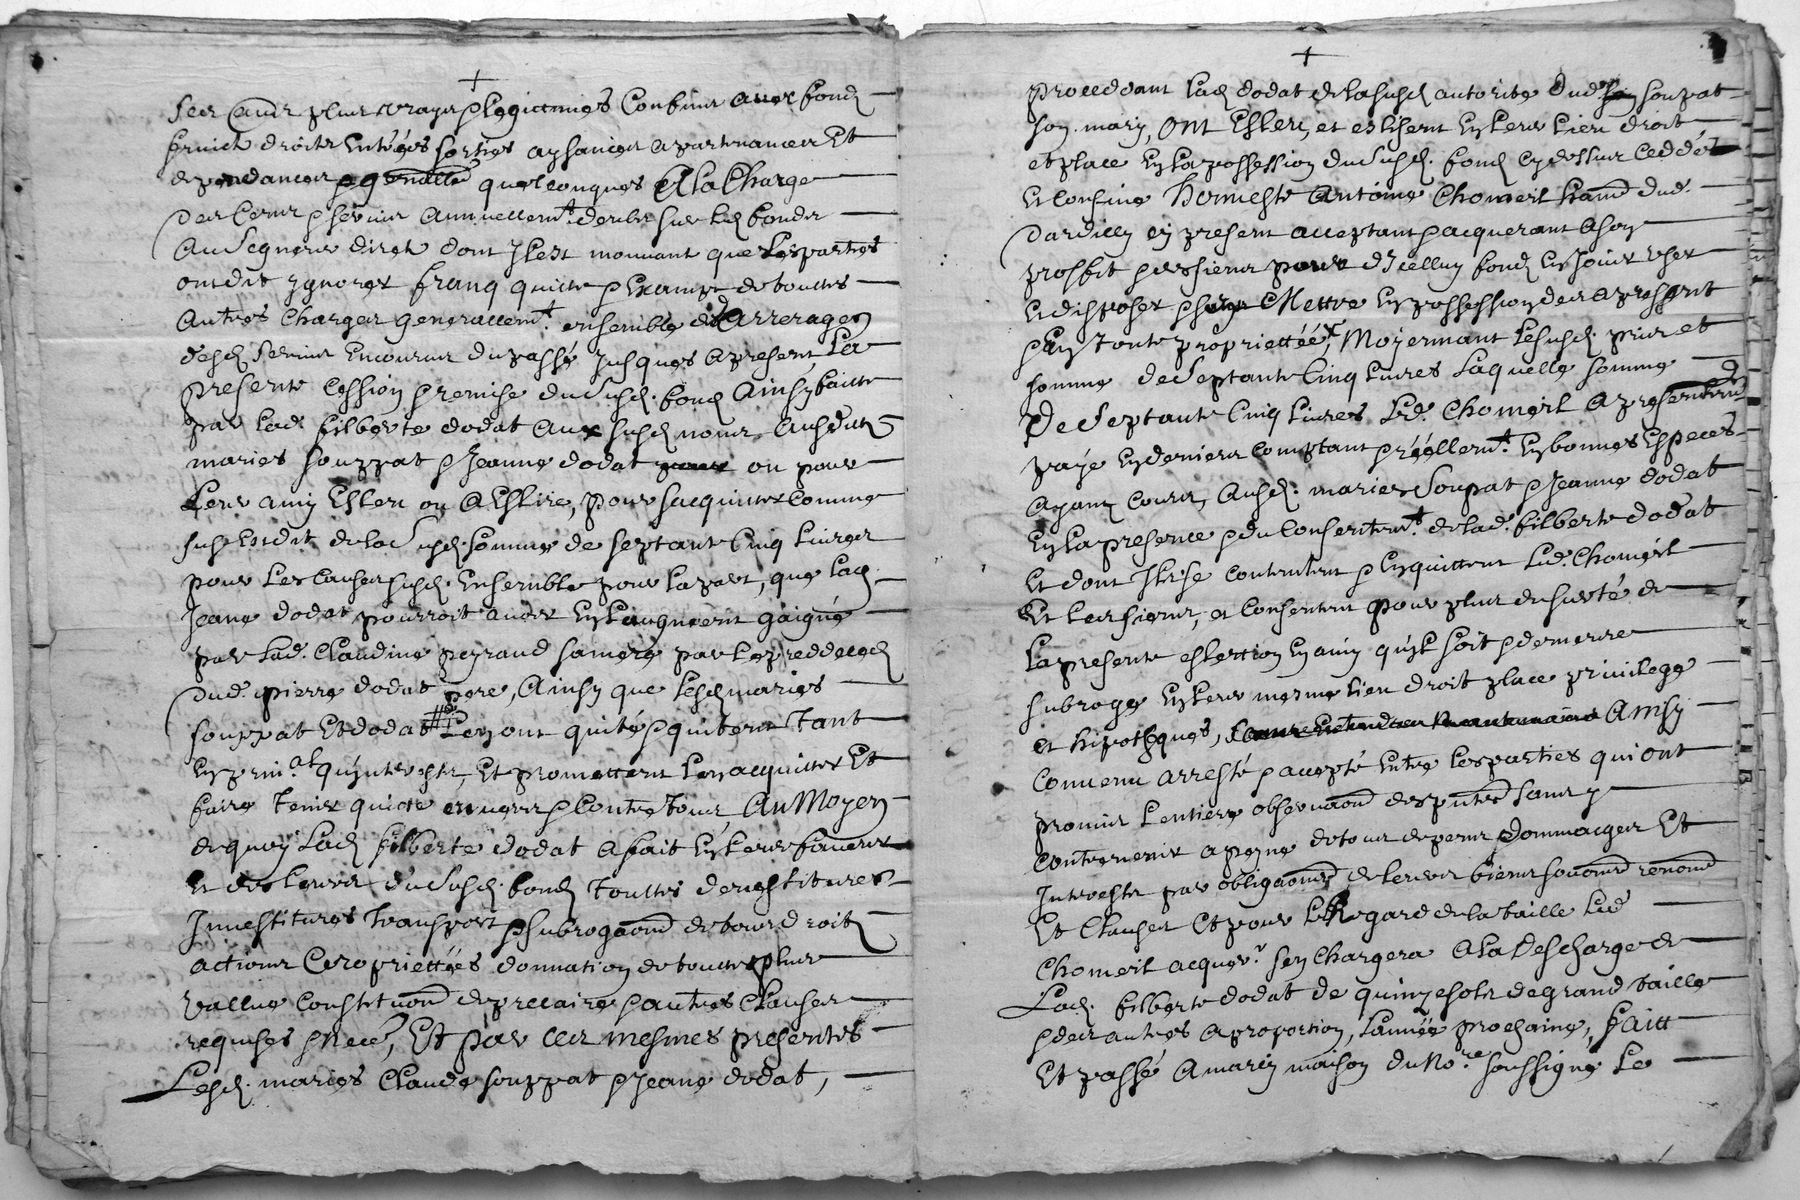 ses autr plus vrays & legittimes confins avec fond
fruict droits entrées sorties aysances apartenances Et
dependances & generallem quelconques A la Charge
des Cens & servis annuellemt deubz sur led fonds
Au Seigneur direct dont Il est mouvant que les parties
ont dit ygnorer franq quitte & Exampt de touttes
Autres Charges generallemt ensemble des Arrerages
desd servis Encourus du passé jusques apresent, La
presente cession & remise du susd. fond Ainsy faitte
par lad. filberte dodat aux susd noms ausdits
maries souppat & Jeanne dodat ou pour
leur amy Esleu ou A Eslire, pour sacquitter comme
susEsdit de la susd. somme de septante Cinq livres
pour les causes susd. Ensemble pour la part, que lad.
Jeane dodat pourroit avoir En laugment gaigné
par lad. Claudine peyraud sa mere par le preddeced
dud. pierre dodat pere, Ainsy que lesd maries
souppat Et dodat Len ont quité & quitent tant
En prin.al quinterestz, Et promettent Len acquitter Et
faire tenir quicte envers & contre tous, Au Moyen
de quoy lad filberte dodat A fait En leur faveur
Et des leurs du susd. fond touttes devestitures
Investitures transport & subrogaon de tous droitz
actions & propriettées donnation de toutte plus
vallue constituon de precaire & autres Clauses
requises & nece, Et par ces mesmes presentes
Lesd. maries Claude souppat & Jeane dodat,
proceddant lad dodat de la susd autorite dud soupat
son mary, ont Esleu, et eslisent En leur lieu droit
et place En la possession du susd. fond cy dessus ceddés
Et confine honneste Antoine Chomeil hand dud.
Dardilly cy present acceptant & acquerant A son
proffit & des siens pour dIcelluy fond En Jouir user
Et disposer & se Mettre En possession des apresent
& En toute propriettéé, Moyennant le susd prix et
somme de septante Cinq livres Laquelle somme
De septante Cinq livres Led. Chomeil A presentem
payé En deniers comptant & réellemt. En bonnes Especes
ayant cours, Ausd. maries Soupat & Jeanne dodat
En la presence & du consentemt. de lad. filberte dodat
Et dont Ilz se contentent & En quittent Led. Chomeil
Et les siens, et consentent pour plus de surté de
La presente eslection En amy quil soit & demeure
subrogé En leur mesme lieu droit place privilege
Et hipoteques, Ainsy
Convenu arresté & accepté Entre les parties qui ont
promis Lentiere observaon des pntes sans y
contrevenir a peyne de tous depens dommages Et
Interestz par obligaons de leurs biens soumon renon
Et Clauses Et pour Le Regard de la taille Led
Chomeil acquer.r sen Chargera A la descharge de
Lad. filberte dodat de quinze solz de grand taille
& des autres a proportion, lannée prochaine, faitt
Et passé A marcy maison du No.re soussigné Le